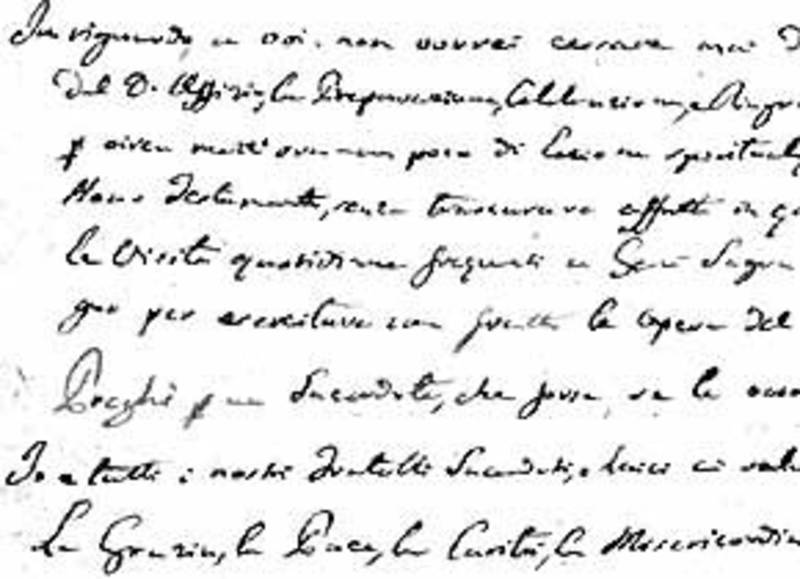 In riguardo a voi, non vorrei cessare mai
del D. Uffizio, la Preparazione, Celebrazione, e
p circa mezz'ora un poco di lezione spirituale
Nuovo Testamento, senza trascurare affatto in
la Visita quotidiana frequente a Gesù Sagra
per esercitare con frutto le opere del
Preghi p un Sacerdote, che forse, se le
Io e tutti i nostri Fratelli Sacerdoti, e Laici vi
La Grazia, la Pace, la Carità, la Misericordia